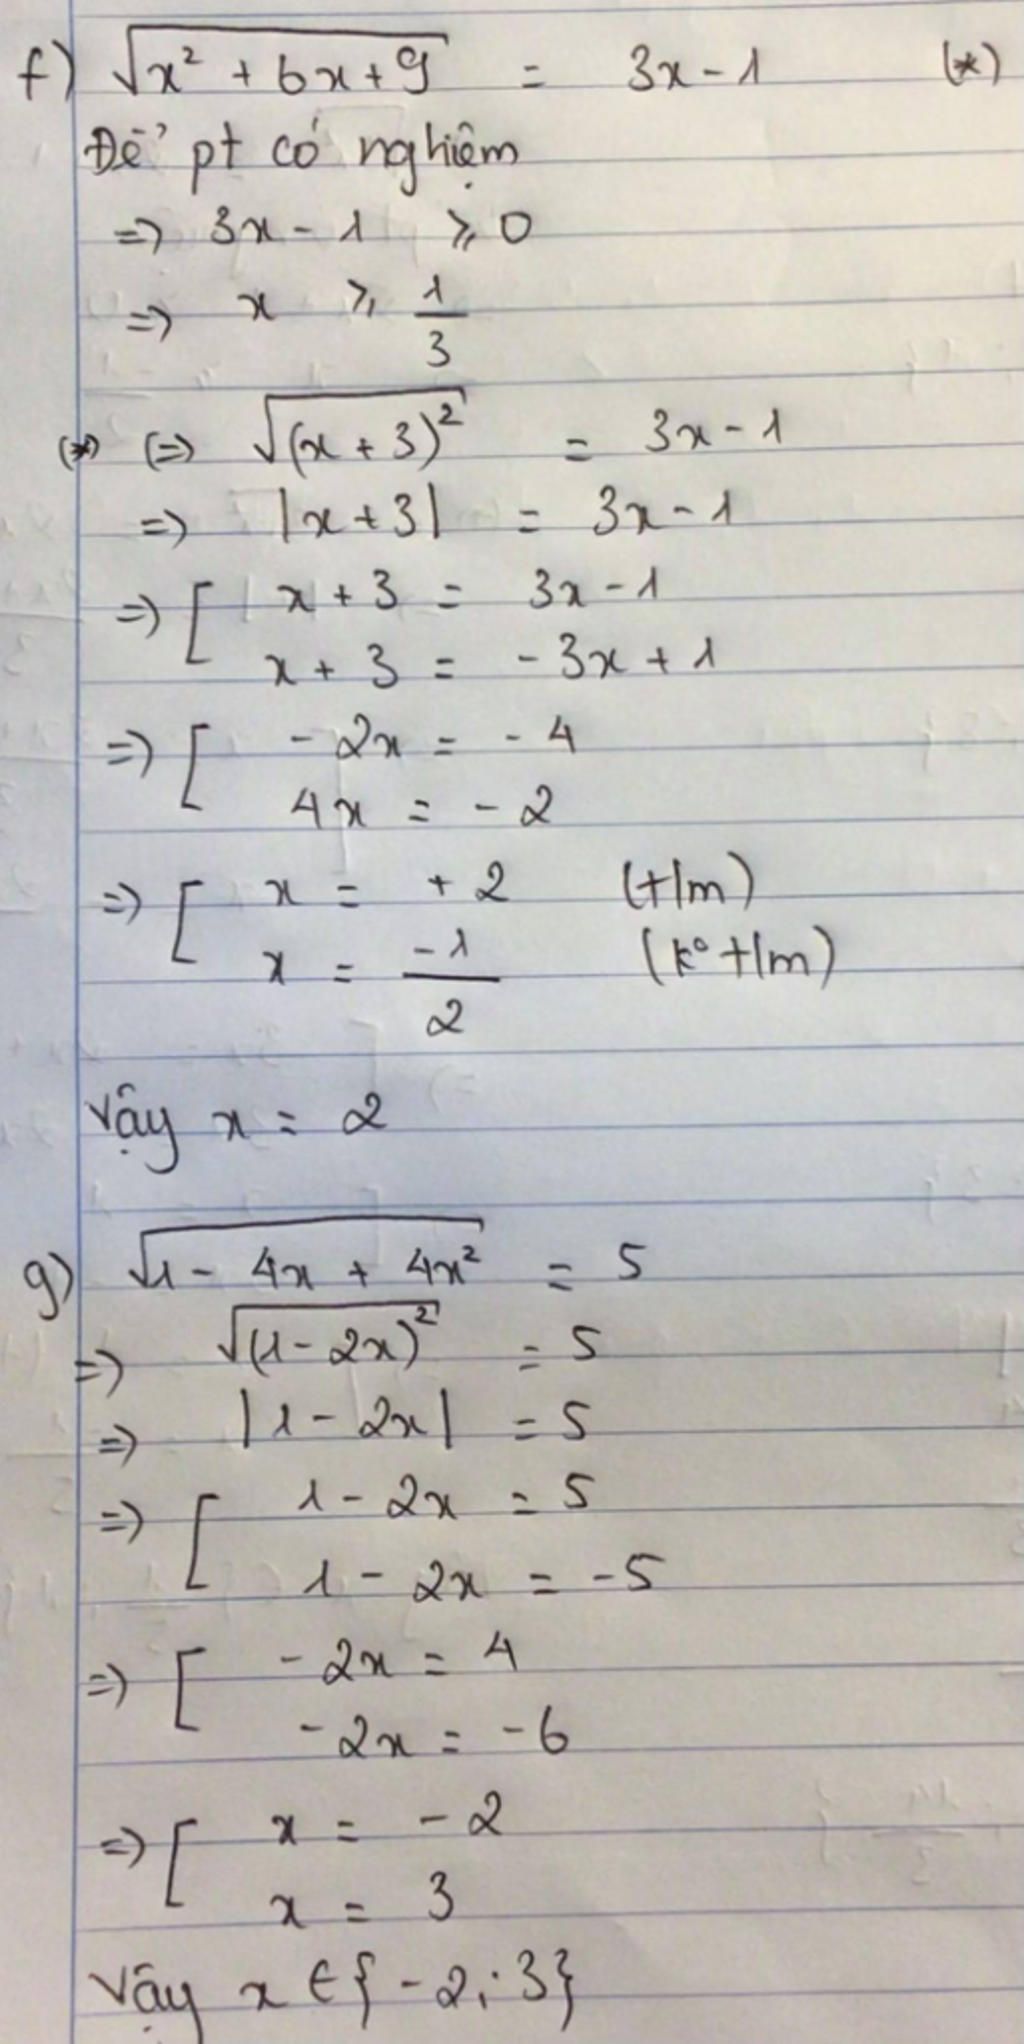 f) √(x² + 6x + 9) = 3x - 1 (*)
Để pt có nghiệm
=> 3x - 1 ⩾ 0
=> x ⩾ 1/3
(*) (=) √((x + 3)²) = 3x - 1
=> |x + 3| = 3x - 1
=> [ x + 3 = 3x - 1
x + 3 = - 3x + 1
=> [ - 2x = - 4
4x = - 2
=> [ x = + 2 (t/m)
x = -1/2 (k° t/m)
Vậy x = 2
g) √(1 - 4x + 4x²) = 5
=> √((1 - 2x)²) = 5
=> |1 - 2x| = 5
=> [ 1 - 2x = 5
1 - 2x = -5
=> [ - 2x = 4
- 2x = - 6
=> [ x = - 2
x = 3
Vậy x ∈ { - 2; 3}